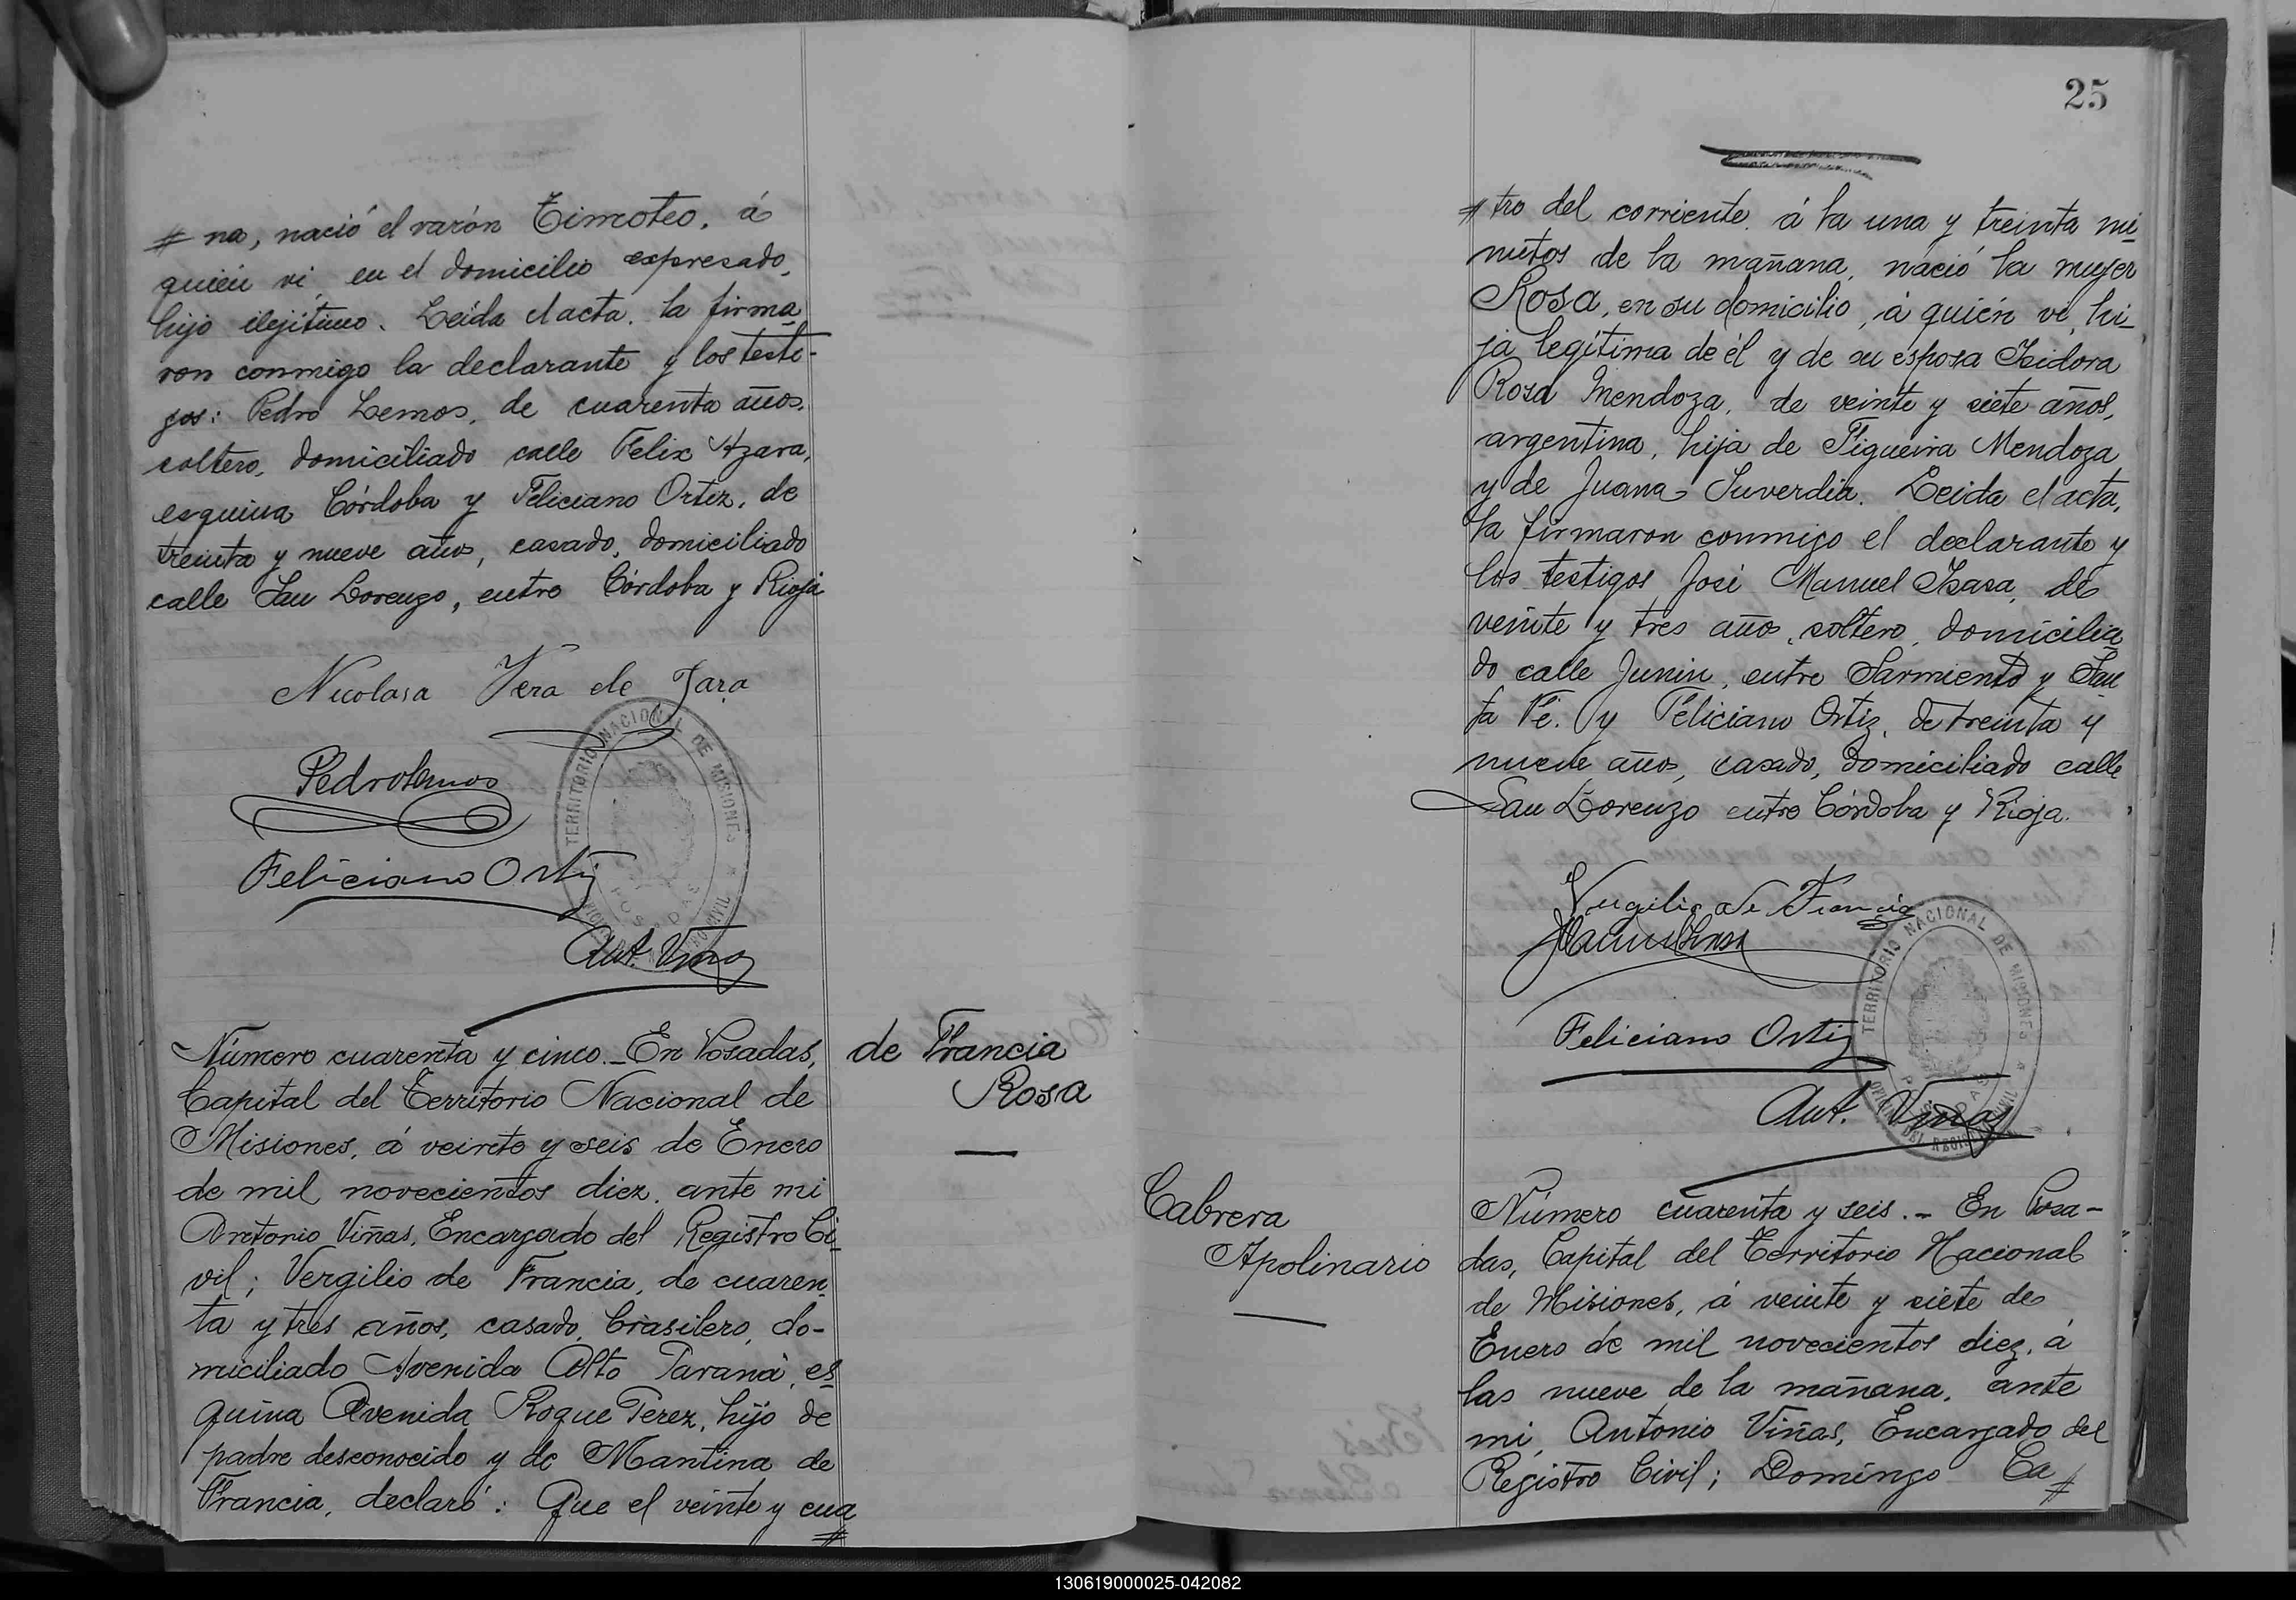 # na, nació el varón Timoteo, á
quién vi en el domicilio expresado,
hijo ilejítimo. Leída el acta, la firma
ron conmigo la declarante y los testi-
gos: Pedro Lemos, de cuarenta años,
soltero, domiciliado calle Felix Azara,
esquina Córdoba y Feliciano Ortiz, de
treinta y nueve años, casado, domiciliado
calle San Lorenzo, entre Córdoba y Rioja
Nicolasa Vera de Jara
Pedro Lemos
Feliciano Ortiz
Ant. Viñas
TERRITORIO NACIONAL DE MISIONES
POSADAS
Número cuarenta y cinco._En Posadas,
Capital del Territorio Nacional de
Misiones, á veinte y seis de Enero
de mil novecientos diez, ante mi
Antonio Viñas, Encargado del Registro Ci_
vil; Vergilio de Francia, de cuaren_
ta y tres años, casado, brasilero, do-
miciliado Avenida Alto Paraná, es_
quina Avenida Roque Perez, hijo de
padre desconocido y de Mantina de
Francia, declaró: Que el veinte y cua
#
de Francia
Rosa
25
# tro del corriente á la una y treinta mi_
nutos de la mañana, nació la mujer
Rosa, en su domicilio, á quién vi, hi_
ja legítima de él y de su esposa Isidora
Rosa Mendoza, de veinte y siete años,
argentina, hija de Figueira Mendoza
y de Juana Suverdia. Leida el acta,
la firmaron conmigo el declarante y
los testigos José Manuel Isasa, de
veinte y tres años, soltero, domicilia_
do calle Junin, entre Sarmiento y San
ta Fé. y Feliciano Ortiz, de treinta y
nueve años, casado, domiciliado calle
San Lorenzo entre Córdoba y Rioja.
Vergilio de Francia
Feliciano Ortiz
Ant. Viñas
TERRITORIO NACIONAL DE MISIONES
OFICINA DEL REGISTRO CIVIL
POSADAS
Cabrera
Apolinario
Número cuarenta y seis._ En Posa-
das, Capital del Territorio Nacional
de Misiones, á veinte y siete de
Enero de mil novecientos diez, á
las nueve de la mañana, ante
mi, Antonio Viñas, Encargado del
Registro Civil; Domingo Ca
#
130619000025-042082